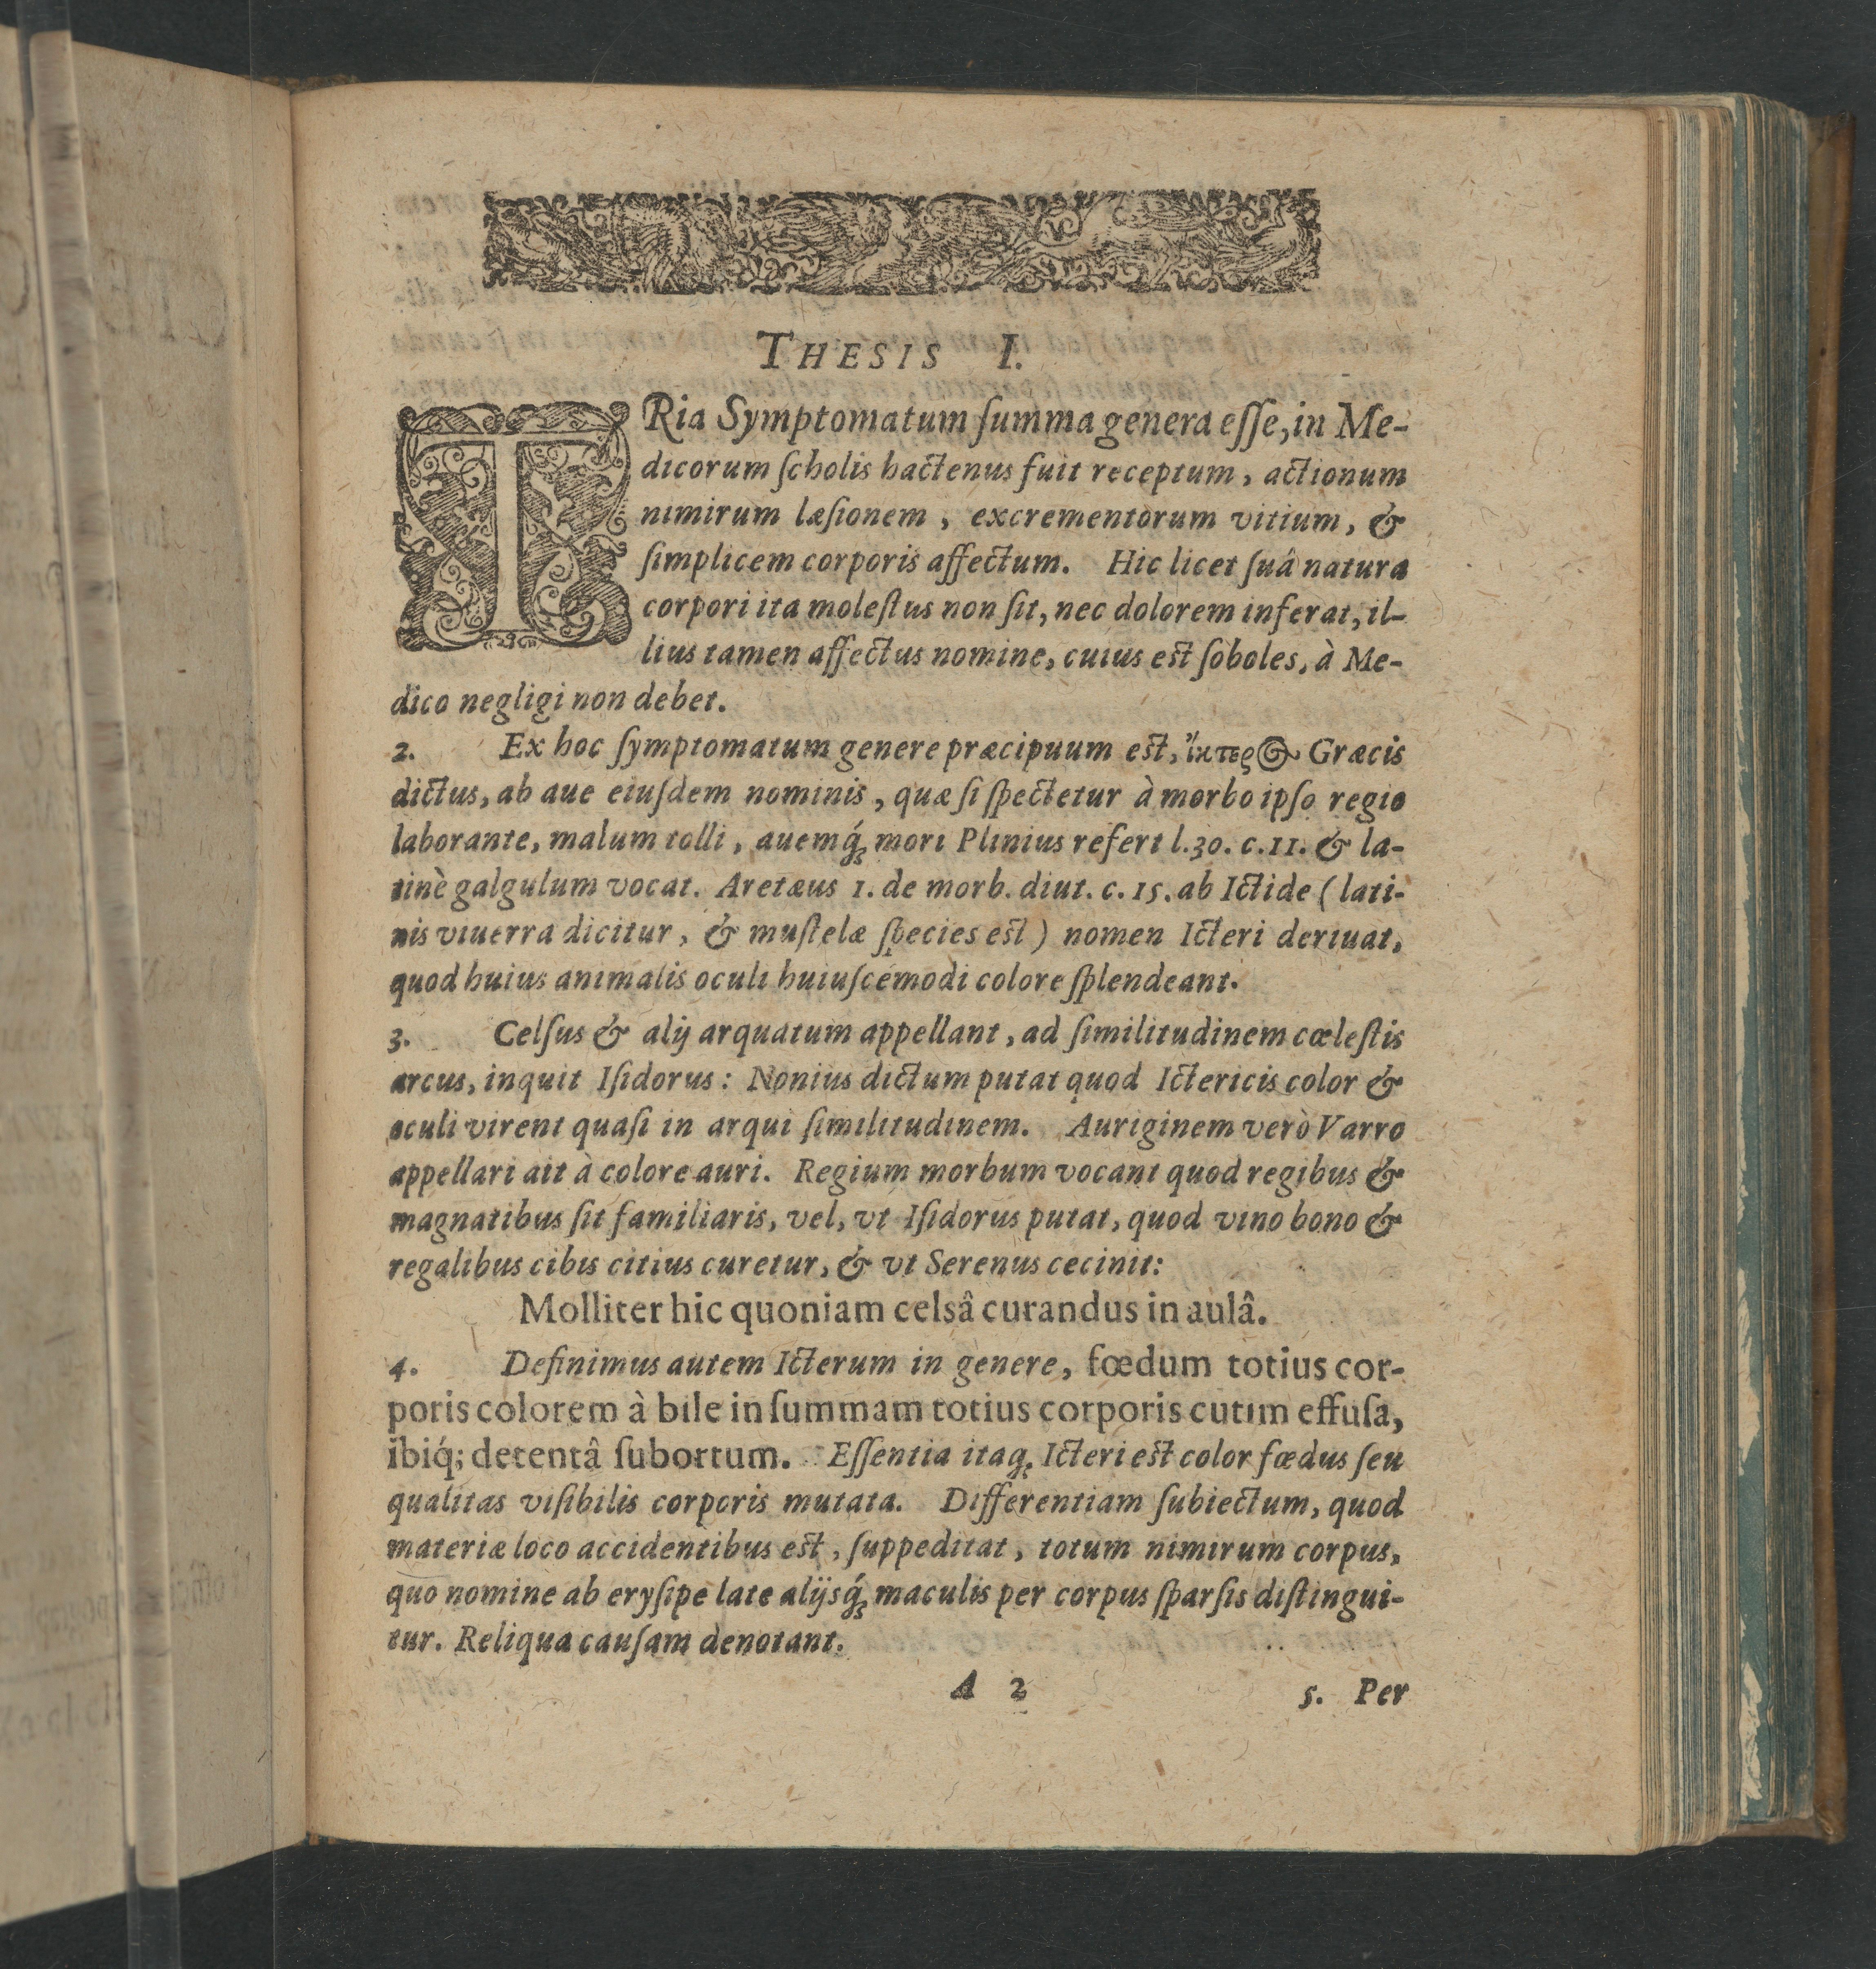 THESIS I.
TRia Symptomatum ſumma genera eſſe, in Me-
dicorum ſcholis hactenus fuit receptum, actionum
nimirum læſionem, excrementorum vitium, &
ſimplicem corporis affectum. Hic licet ſuâ natura
corpori ita moleſtus non ſit, nec dolorem inferat, il-
lius tamen affectus nomine, cuius est ſoboles, à Me-
dico negligi non debet.
2. Ex hoc ſymptomatum genere præcipuum est, ἴκτερος Græcis
dictus, ab aue eiuſdem nominis, quæ ſi ſpectetur à morbo ipſo regio
laborante, malum tolli, auemq́ꝫ mori Plinius refert l.30. c.11. & la-
tinè galgulum vocat. Aretæus 1. de morb. diut. c. 15. ab Ictide (lati-
nis viuerra dicitur, & muſtelæ ſpecies est) nomen Icteri deriuat,
quod huius animalis oculi huiuſcémodi colore ſplendeant.
3. Celſus & alij arquatum appellant, ad ſimilitudinem cœleſtis
arcus, inquit Iſidorus: Nonius dictum putat quod Ictericis color &
oculi virent quaſi in arqui ſimilitudinem. Auriginem verò Varro
appellari ait à colore auri. Regium morbum vocant quod regibus &
magnatibus ſit familiaris, vel, vt Iſidorus putat, quod vino bono &
regalibus cibis citius curetur, & vt Serenus cecinit:
Molliter hic quoniam celsâ curandus in aulâ.
4. Definimus autem Icterum in genere, fœdum totius cor-
poris colorem à bile in ſummam totius corporis cutim effuſa,
ibiq́; detentâ ſubortum. Eſſentia itaqꝫ Icteri est color fœdus ſeu
qualitas viſibilis corporis mutata. Differentiam ſubiectum, quod
materiæ loco accidentibus est, ſuppeditat, totum nimirum corpus,
quo nomine ab eryſipe late alijsq́ꝫ maculis per corpus ſparſis diſtingui-
tur. Reliqua cauſam denotant.
A 2 5. Per